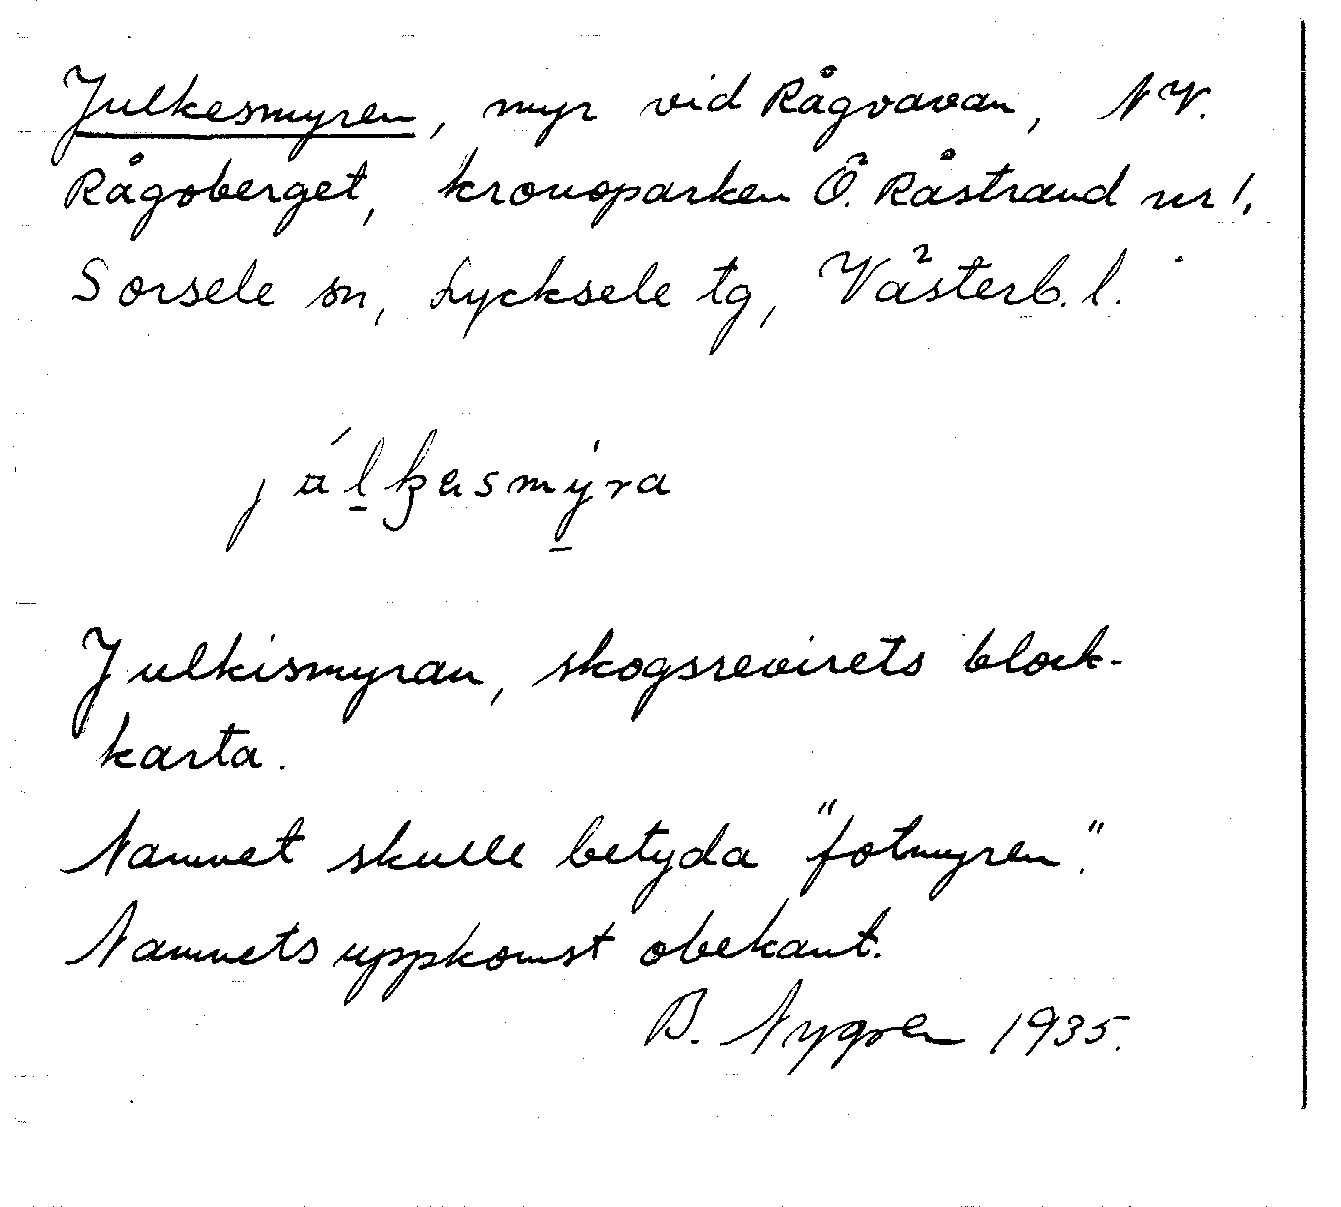 Julkesmyren, myr vid Rågvavan, NV.
Rågoberget, kronoparken Ö. Råstrand nr 1,
Sorsele sn, Lycksele tg, Västerb. l.
Julkismyran, skogsrevirets block-
karta.
Namnet skulle betyda "fotmyren".
Namnets uppkomst obekant.
B. Nygren 1935.